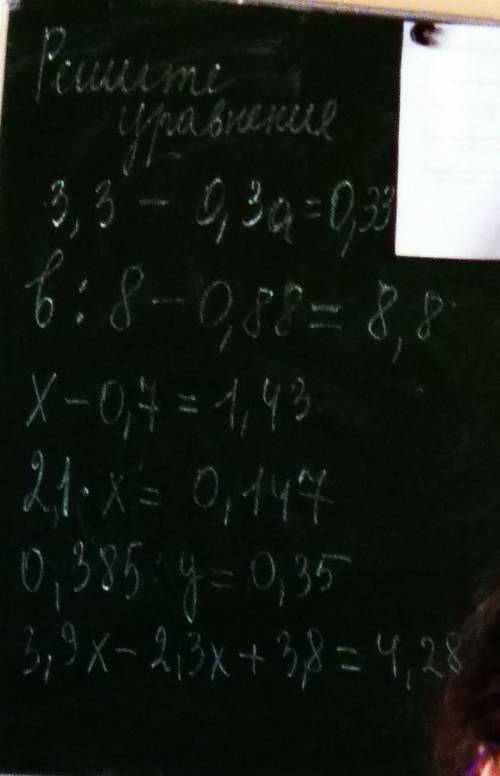 Решите
уравнение
3,3 - 0,3a = 0,33
в : 8 - 0,88 = 8,8
х - 0,7 = 1,43
2,1 · х = 0,147
0,385 : у = 0,35
3,9х - 2,3х + 3,8 = 4,28